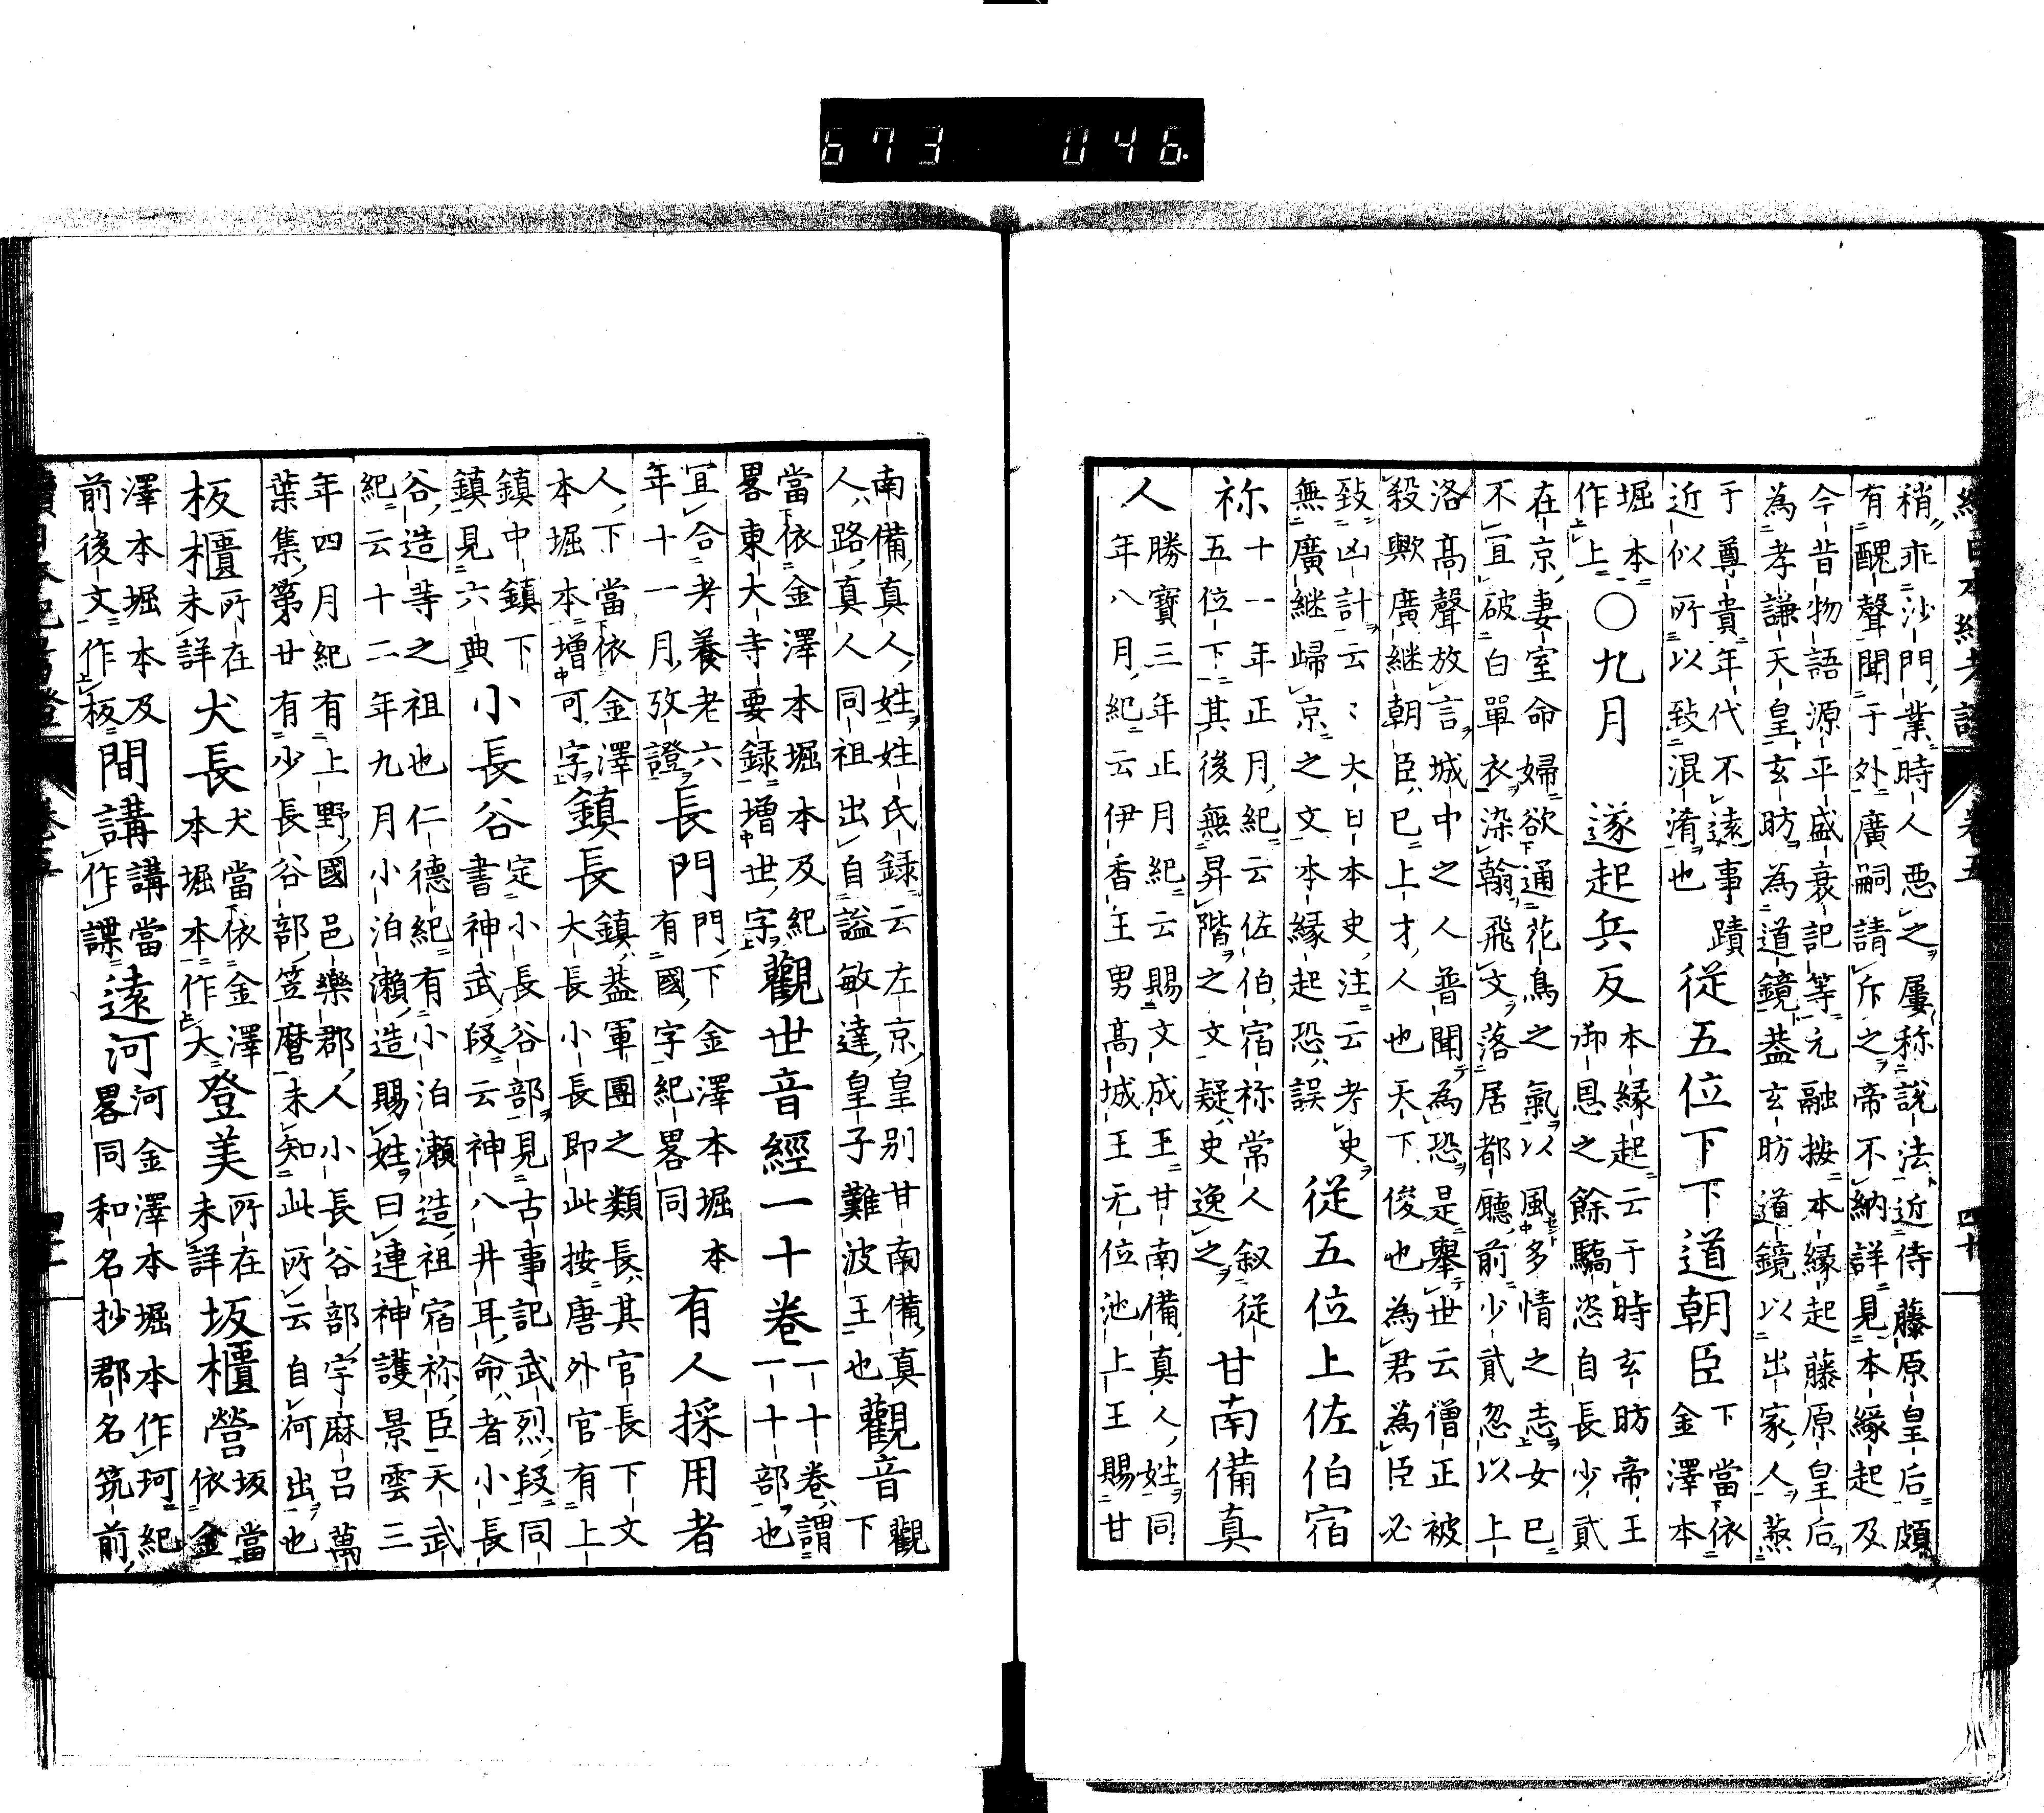 續日本紀考證 卷五 四十
稍乖沙門業時人惡之屢称說法近侍藤原皇后頗
有醜聲聞于外廣嗣請斥之帝不納詳見本緣起及
今昔物語源平盛衰記等元融按本緣起藤原皇后
為孝謙天皇玄昉為道鏡蓋玄昉道鏡以出家人烝
于尊貴年代不遠事蹟
近似所以致混淆也
從五位下下道朝臣
下當依
金澤本
堀本
作上
〇九月 遂起兵反
本緣起云于時玄昉帝王
御恩之餘驕恣自長少貳
在京妻室命婦欲通花鳥之氣以風多情之志女已
不宜破白單衣染翰飛文落居都聽前少貳忽以上
洛高聲放言城中之人普聞為恐是舉世云僧正被
殺歟廣継朝臣已上才人也天下俊也為君為臣必
致凶計云〻大日本史注云考史
無廣継歸京之文本緣起恐誤
從五位上佐伯宿
祢
十一年正月紀云佐伯宿祢常人叙從
五位下其後無昇階之文疑史逸之
甘南備真
人
勝寶三年正月紀云賜文成王甘南備真人姓同
年八月紀云伊香王男高城王无位池上王賜甘
南備真人姓姓氏録云左京皇别甘南備真
人路真人同祖出自謚敏達皇子難波王也
觀音
觀
下
當依金澤本堀本及紀
畧東大寺要録增世字
觀世音經一十卷
一十卷謂
一十部也
宜合考養老六
年十一月攷證
長門
門下金澤本堀本
有國字紀畧同
有人採用者
人下當依金澤
本堀本增可字
鎮長
鎮蓋軍團之類長其官長下文
大長小長即此按唐外官有上
鎮中鎮下
鎮見六典
小長谷
定小長谷部見古事記武烈段同
書神武段云神八井耳命者小長
谷造等之祖也仁德紀有小泊瀬造祖宿祢臣天武
紀云十二年九月小泊瀬造賜姓曰連神護景雲三
年四月紀有上野國邑樂郡人小長谷部宇麻呂萬
葉集第廿有少長谷部笠麿未知此所云自何出也
板櫃
所在
未詳
犬長
犬當依金澤
本堀本作大
登美
所在
未詳
坂櫃營
坂當
依金
澤本堀本及
前後文作板
間講
講當
作諜
遠河
河金澤本堀本作珂紀
畧同和名抄郡名筑前